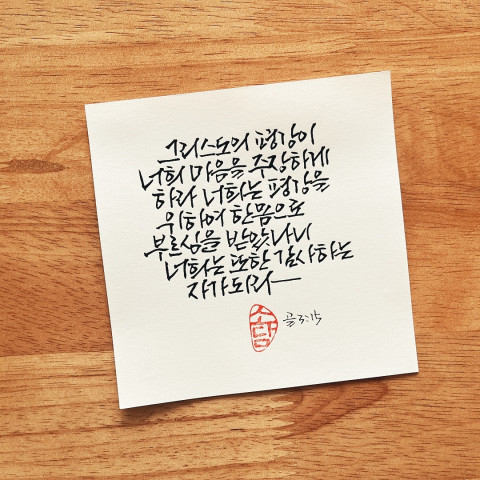 그리스도의 평강이
너희 마음을 주장하게
하라 너희는 평강을
위하여 한몸으로
부르심을 받았나니
너희는 또한 감사하는
자가 되라
골 3:15